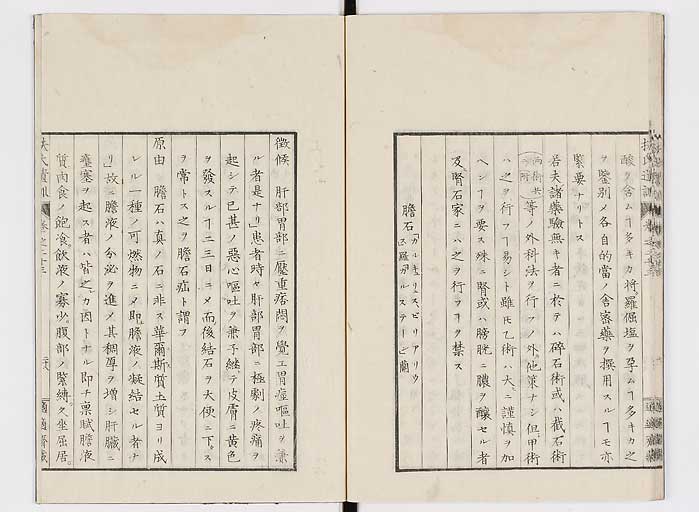 酸ヲ含ムヿ多キカ将羅倔塩ヲ孕ムヿ多キカ之
ヲ鑒別メ各自的當ノ舎密藥ヲ撰用スルヿモ亦
緊要ナリトス
若夫諸藥驗無キ者ニ於テハ碎石術或ハ截石術
等ノ外科法ヲ行フノ外他策ナシ但甲術
ハ之ヲ行フヿ易シト雖𪜈乙術ハ大ニ謹慎ヲ加
ヘンヿヲ要ス殊ニ腎或ハ膀胱ニ膿ヲ釀セル者
及腎石家ニハ之ヲ行フヿヲ禁ス
膽石
徴候 肝部胃部ニ壓重痞悶ヲ覺エ胃痙嘔吐ヲ兼
ル者是ナリ患者時々肝部胃部ニ極劇ノ疼痛ヲ
起シテ已甚ノ惡心嘔吐ヲ兼子継テ皮膚ニ黄色
ヲ發スルヿ二三日ニメ而後結石ヲ大便ニ下ス
ヲ常トス之ヲ膽石疝ト謂フ
原由 膽石ハ真ノ石ニ非ス華爾斯質土質ヨリ成
レル一種ノ可燃物ニメ即膽液ノ凝結セル者ナ
リ故ニ膽液ノ分泌ヲ進メ其稠厚ヲ増シ肝臓ニ
壅塞ヲ起ス者ハ皆之カ因トナル即チ禀賦膽液
質肉食ノ飽飡飲液ノ寡少腹部ノ緊縛久坐屈居